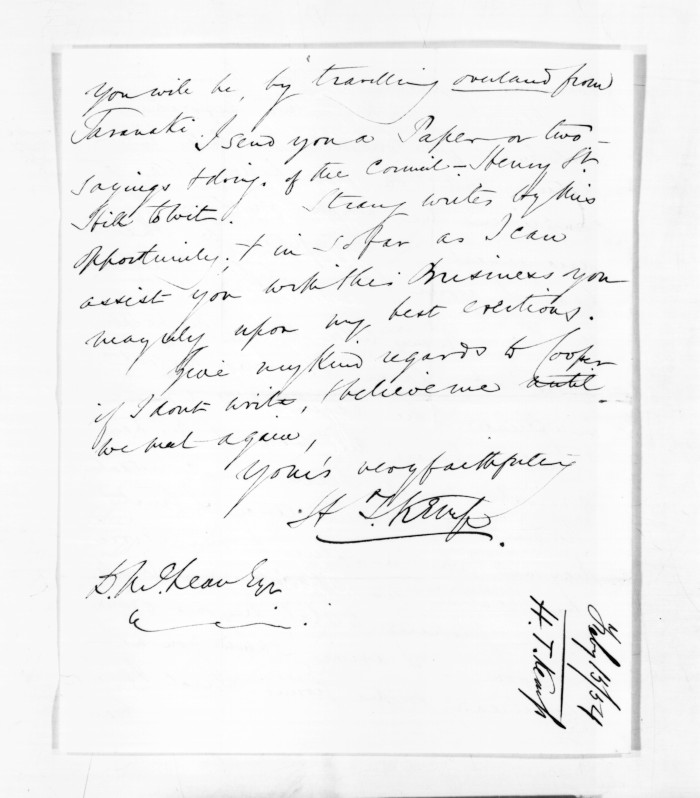 you will be, by travelling overland from
Taranaki. I send you a Paper or two –
sayings & doings of the Council – Henry St.
Hill to wit. Strang writes by this
opportunity, & in – so far as I can
assist you with this Business you
may rely upon my best exertions.
Give my kind regards to Cooper
if I dont write, & believe me until
we meet again,
Yours very faithfully
H. T. Kemp
D. McLean Esqr
H. T. Kemp
Feby 13/54